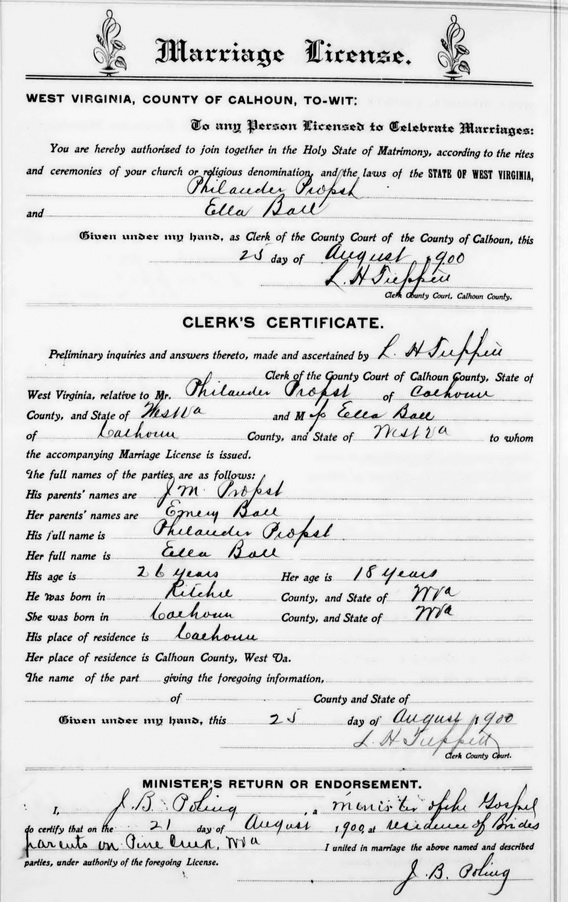 Marriage License.
WEST VIRGINIA, COUNTY OF CALHOUN, TO-WIT:
To any Person Licensed to Celebrate Marriages:
You are hereby authorized to join together in the Holy State of Matrimony, according to the rites
and ceremonies of your church or religious denomination, and the laws of the STATE OF WEST VIRGINIA,
Philander Propst
and Ella Ball
Given under my hand, as Clerk of the County Court of the County of Calhoun, this
25 day of August 1900
L. H Trippett
Clerk County Court, Calhoun County.
CLERK'S CERTIFICATE.
Preliminary inquiries and answers thereto, made and ascertained by L. H Trippett
Clerk of the County Court of Calhoun County, State of
West Virginia, relative to Mr. Philander Propst of Calhoun
County, and State of West Va and M Ella Ball
of Calhoun County, and State of West Va to whom
the accompanying Marriage License is issued.
The full names of the parties are as follows:
His parents' names are J. M. Propst
Her parents' names are Emery Ball
His full name is Philander Propst
Her full name is Ella Ball
His age is 26 years Her age is 18 years
He was born in Ritchie County, and State of WVa
She was born in Calhoun County, and State of WVa
His place of residence is Calhoun
Her place of residence is Calhoun County, West Va.
The name of the part giving the foregoing information,
of County and State of
Given under my hand, this 25 day of August 1900
L. H Trippett
Clerk County Court.
MINISTER'S RETURN OR ENDORSEMENT.
I, J. B. Poling, a minister of the Gospel
do certify that on the 21 day of August 1900, at residence of Brides
parents on Pine Creek, WVa I united in marriage the above named and described
parties, under authority of the foregoing License.
J. B. Poling